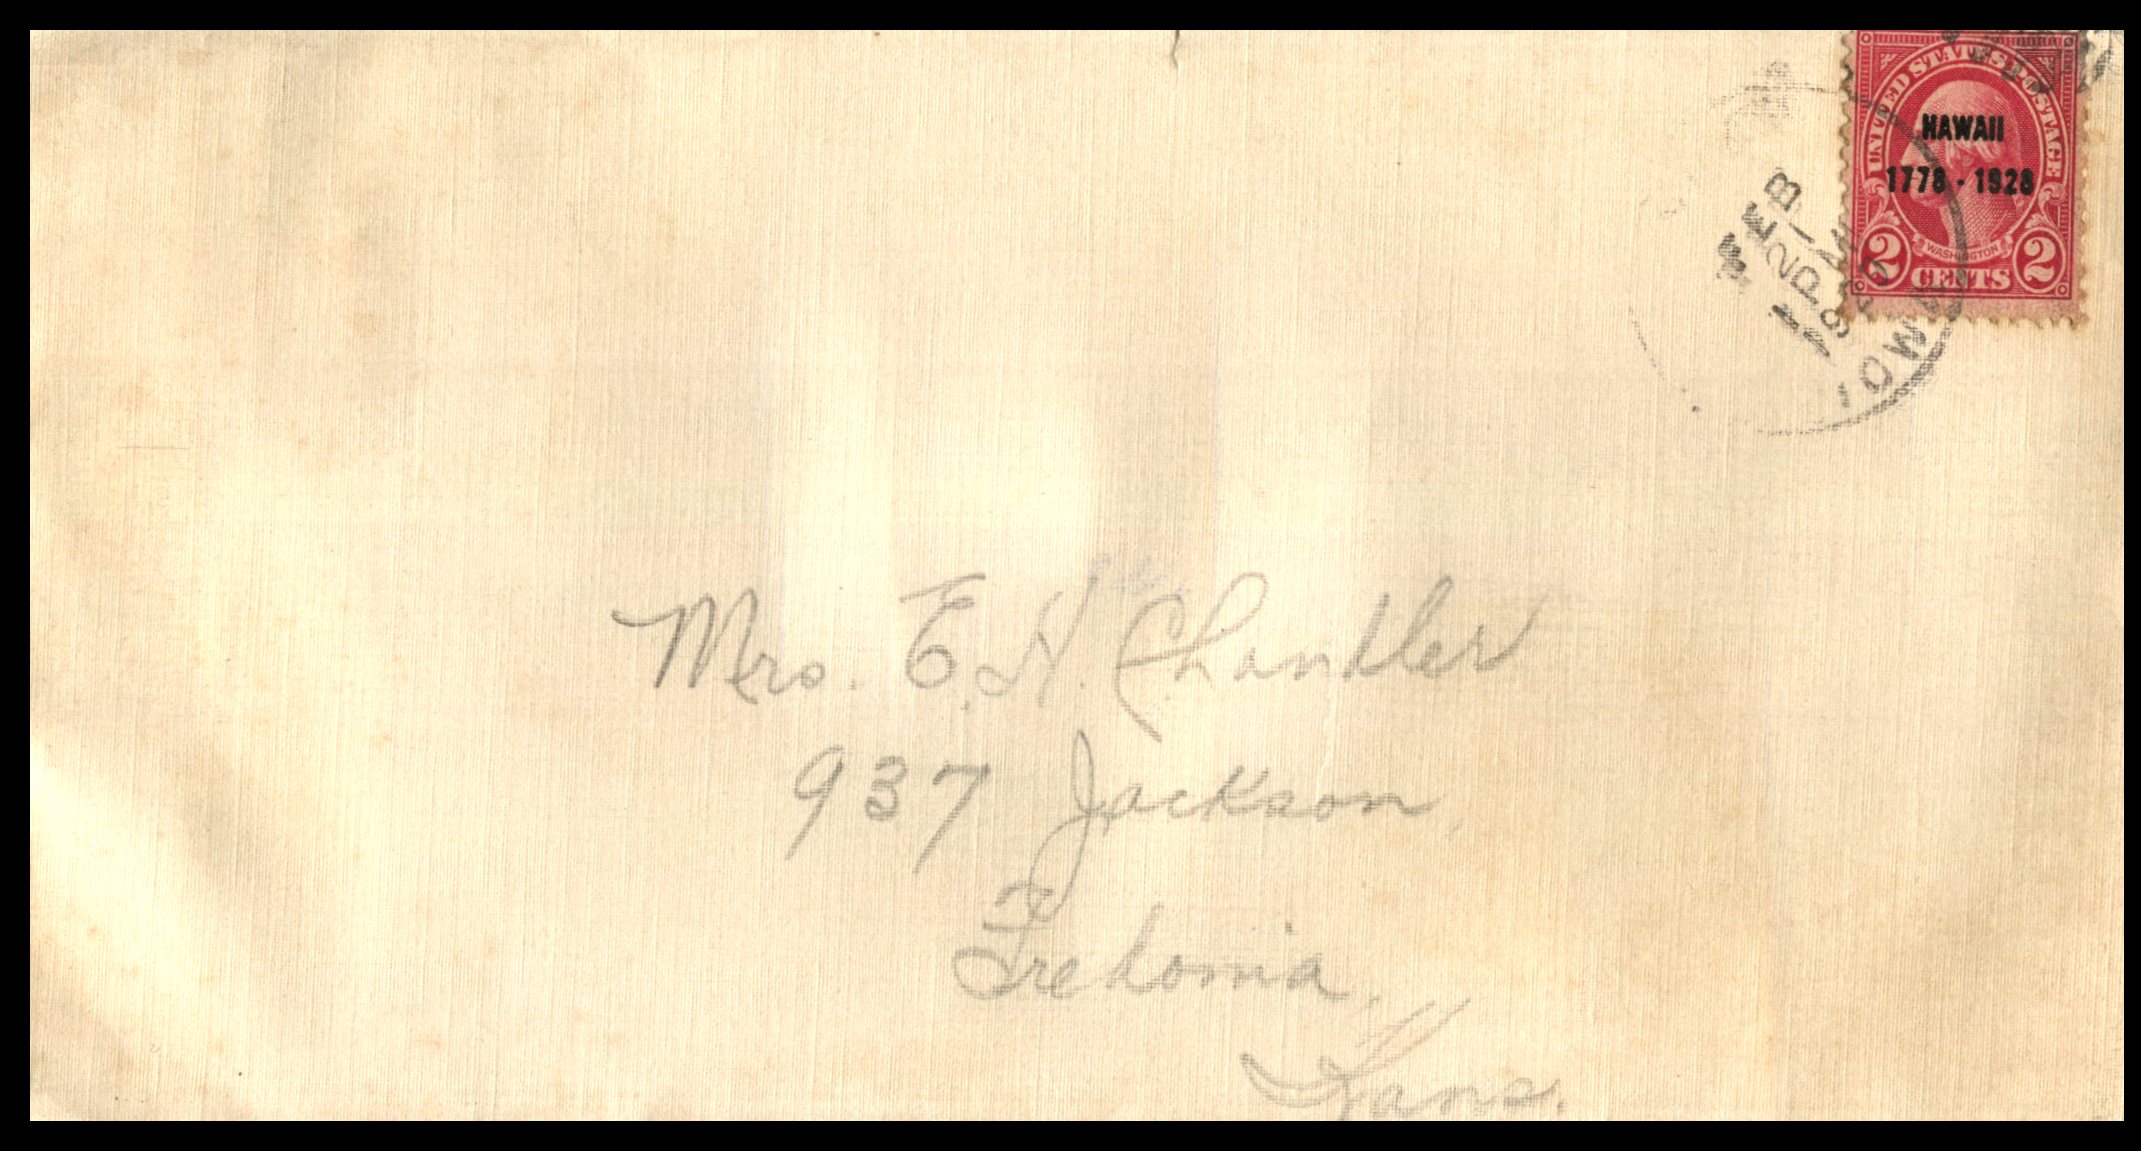 UNITED STATES POSTAGE
HAWAII
1778 - 1928
WASHINGTON
2 CENTS 2
FEB
21
PM
IOWA
Mrs. E. H. Chandler
937 Jackson,
Fredonia,
Kans.